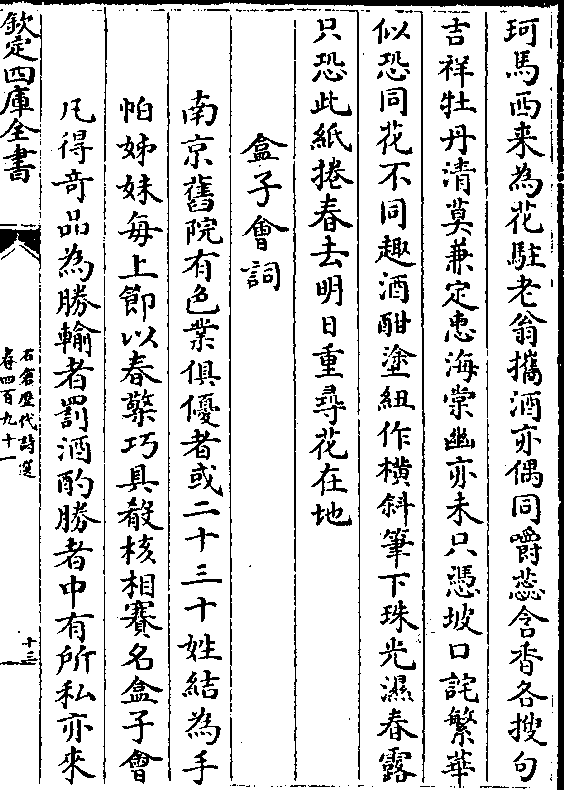 珂馬西来為花駐老翁攜酒亦偶同嚼蕊含香各搜句
吉祥牡丹清莫兼定惠海棠幽亦未只憑坡口詫繁華
似恐同花不同趣酒酣塗紐作橫斜筆下珠光濕春露
只恐此紙捲春去明日重尋花在地
盒子會詞
南京舊院有色業俱優者或二十三十姓結為手
帕姊妹每上節以春檠巧具殽核相賽名盒子會
凡得奇品為勝輸者罰酒酌勝者中有所私亦來
欽定四庫全書
石倉歷代詩選
卷四百九十一
十三